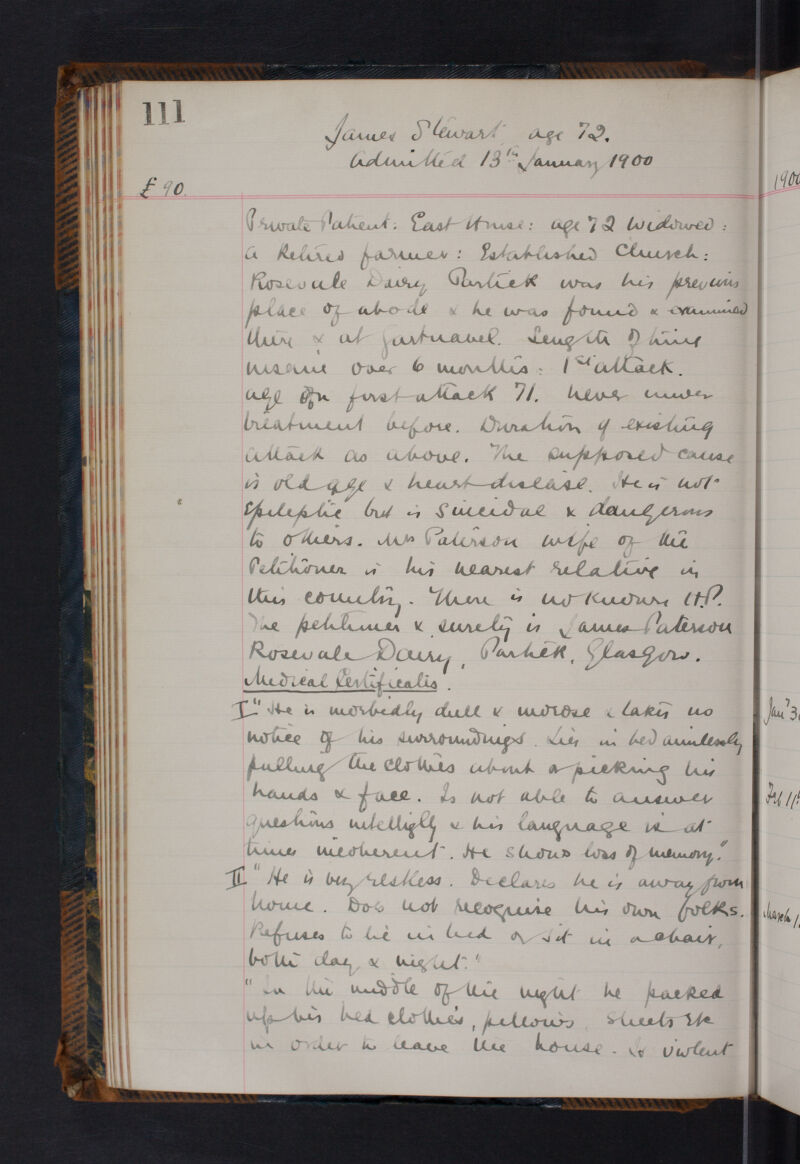 111
James Stewart age 72.
Admitted 13th January 1900
£90.
Private Patient: East House: age 72 widowed:
a Retired farmer: Established Church:
Rosevale Dairy Partick was his previous
place of abode & he was found & examined
there & at Gartnavel. Length of time
insane over 6 months: 1st attack.
age on first attack 71. never under
treatment before. Duration of existing
attack as above. The supposed cause
is old age & heart disease. He is not
Epileptic but is Suicidal & dangerous
to others. Mrs Paterson wife of the
Petitioner is his nearest relative in
this country. There is no known H.P.
The petitioner & surety is James Paterson
Rosevale Dairy, Partick, Glasgow.
Medical Certificates.
I "He is morbidly dull & morose & takes no
notice of his surroundings. Lies in bed aimlessly
pulling the clothes about or picking his
hands & face. Is not able to answer
questions intelligly & his language is at
times incoherent. He shows loss of memory."
II "He is very restless. Declares he is away from
home. Does not recognise his own folks.
Refuses to lie in bed or sit in a chair,
both day & night."
"In the middle of the night he packed
up his bed clothes, pillows, sheets etc
in order to leave the house. Is violent
1900
Jany 3
Feb 11
March 1